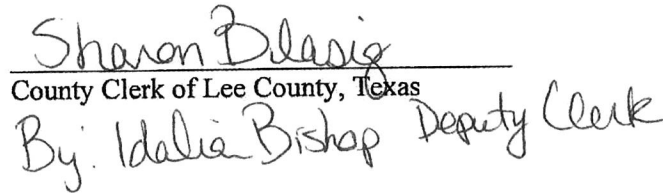 Sharon Blasig
County Clerk of Lee County, Texas
By: Idalia Bishop Deputy Clerk